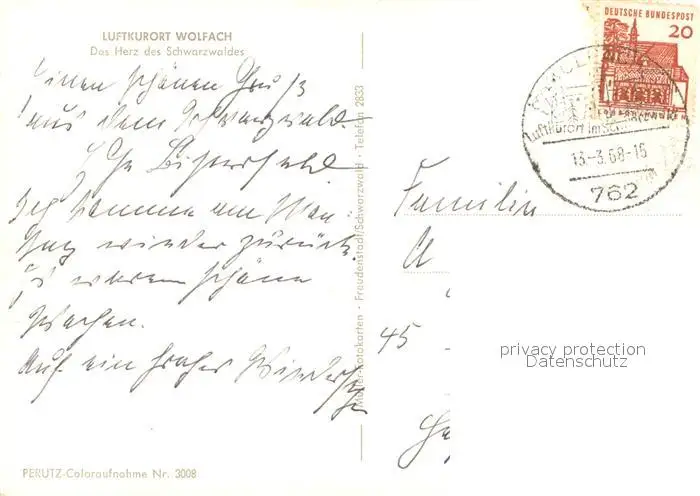 LUFTKURORT WOLFACH
Das Herz des Schwarzwaldes
Einen schönen Gruß
aus dem Schwarzwald.
Ich komme am Mon
tag wieder zurück.
Es waren schöne
Wochen.
Auf ein frohes Wiederseh
PERUTZ-Coloraufnahme Nr. 3008
Müller-Fotokarten · Freudenstadt/Schwarzwald · Telefon 2833
DEUTSCHE BUNDESPOST
20
Luftkurort im Schw
13-3.68-15
762
Familie
45
privacy protection
Datenschutz